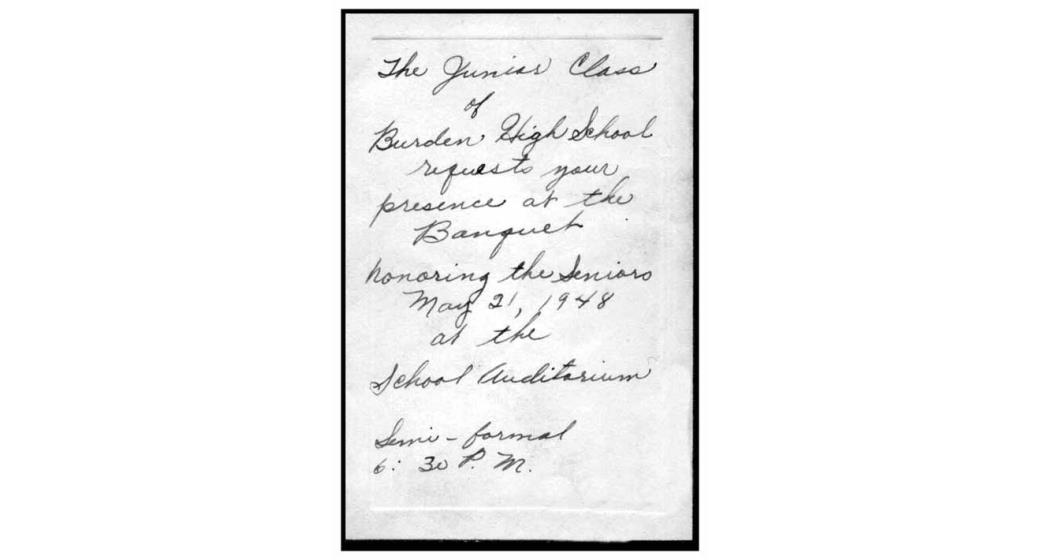 The Junior Class
of
Burden High School
requests your
presence at the
Banquet
honoring the Seniors
May 21, 1948
at the
School Auditorium
Semi-formal
6:30 P.M.